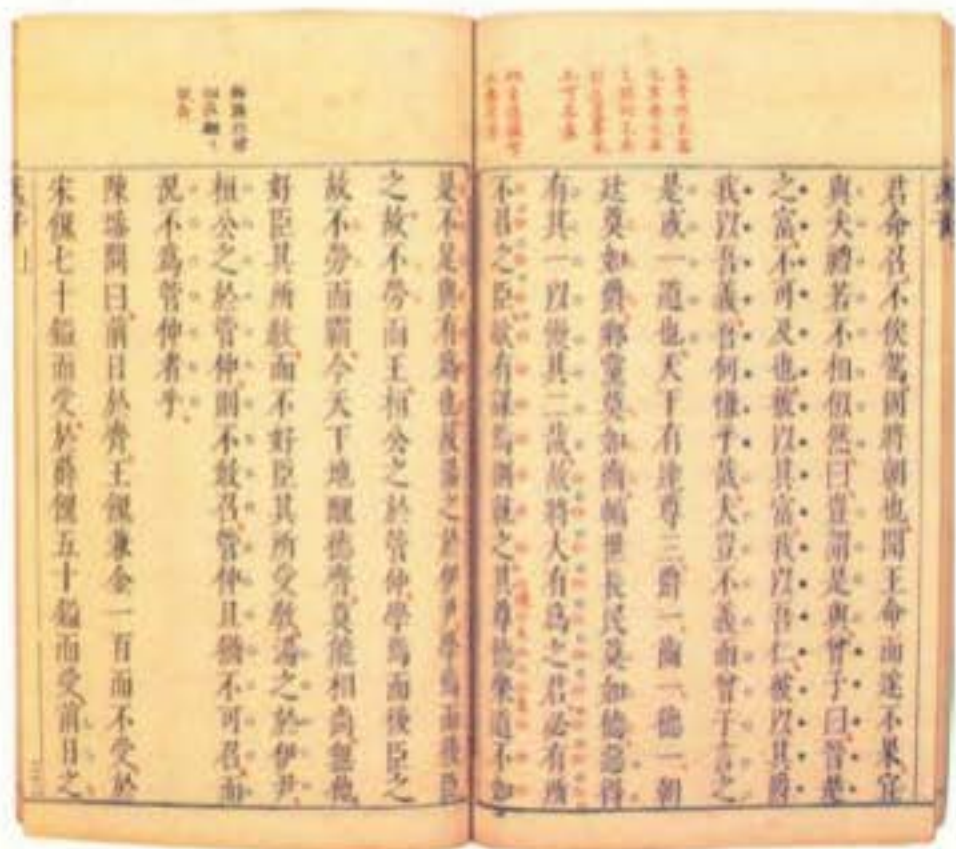 君命召不俟駕固將朝也聞王命而遂不果宜
與夫禮若不相似然曰豈謂是與曾子曰晉楚
之富不可及也彼以其富我以吾仁彼以其爵
我以吾義吾何慊乎哉夫豈不義而曾子言之
是或一道也天下有達尊三爵一齒一德一朝
廷莫如爵鄉黨莫如齒輔世長民莫如德惡得
有其一以慢其二哉故將大有為之君必有所
不召之臣欲有謀焉則就之其尊德樂道不如
是不足與有為也故湯之於伊尹學焉而後臣
之故不勞而王桓公之於管仲學焉而後臣之
故不勞而霸今天下地醜德齊莫能相尚無他
好臣其所教而不好臣其所受教湯之於伊尹
桓公之於管仲則不敢召管仲且猶不可召而
況不為管仲者乎
陳臻問曰前日於齊王餽兼金一百而不受於
宋餽七十鎰而受於薛餽五十鎰而受前日之